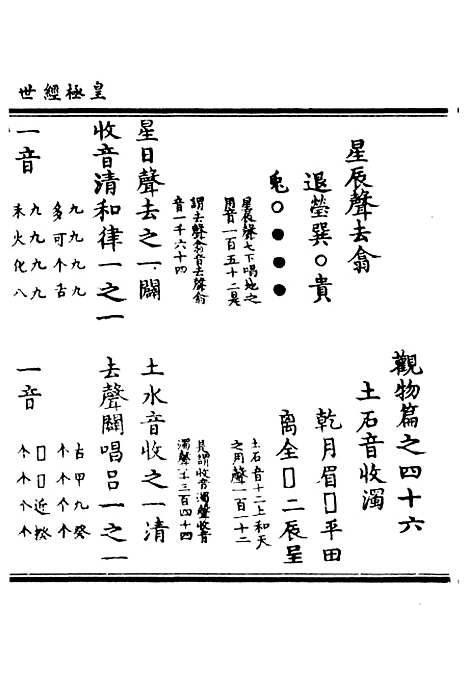 皇極經世
觀物篇之四十六
星辰聲去翕
土石音收濁
退瑩巽○貴
乾月眉□平田
兔○●●●
离全□二辰呈
星辰聲七下唱地之
用音一百五十二是
謂去聲翕音去聲翕
音一千六十四
土石音十二上和天
之用聲一百一十二
是謂收音濁聲收音
濁聲一千三百四十四
星日聲去之一闢
土水音收之一清
收音清和律一之一
去聲闢唱呂一之一
一音
一音
九九九九
多可个舌
九九九九
未火化八
古甲九癸